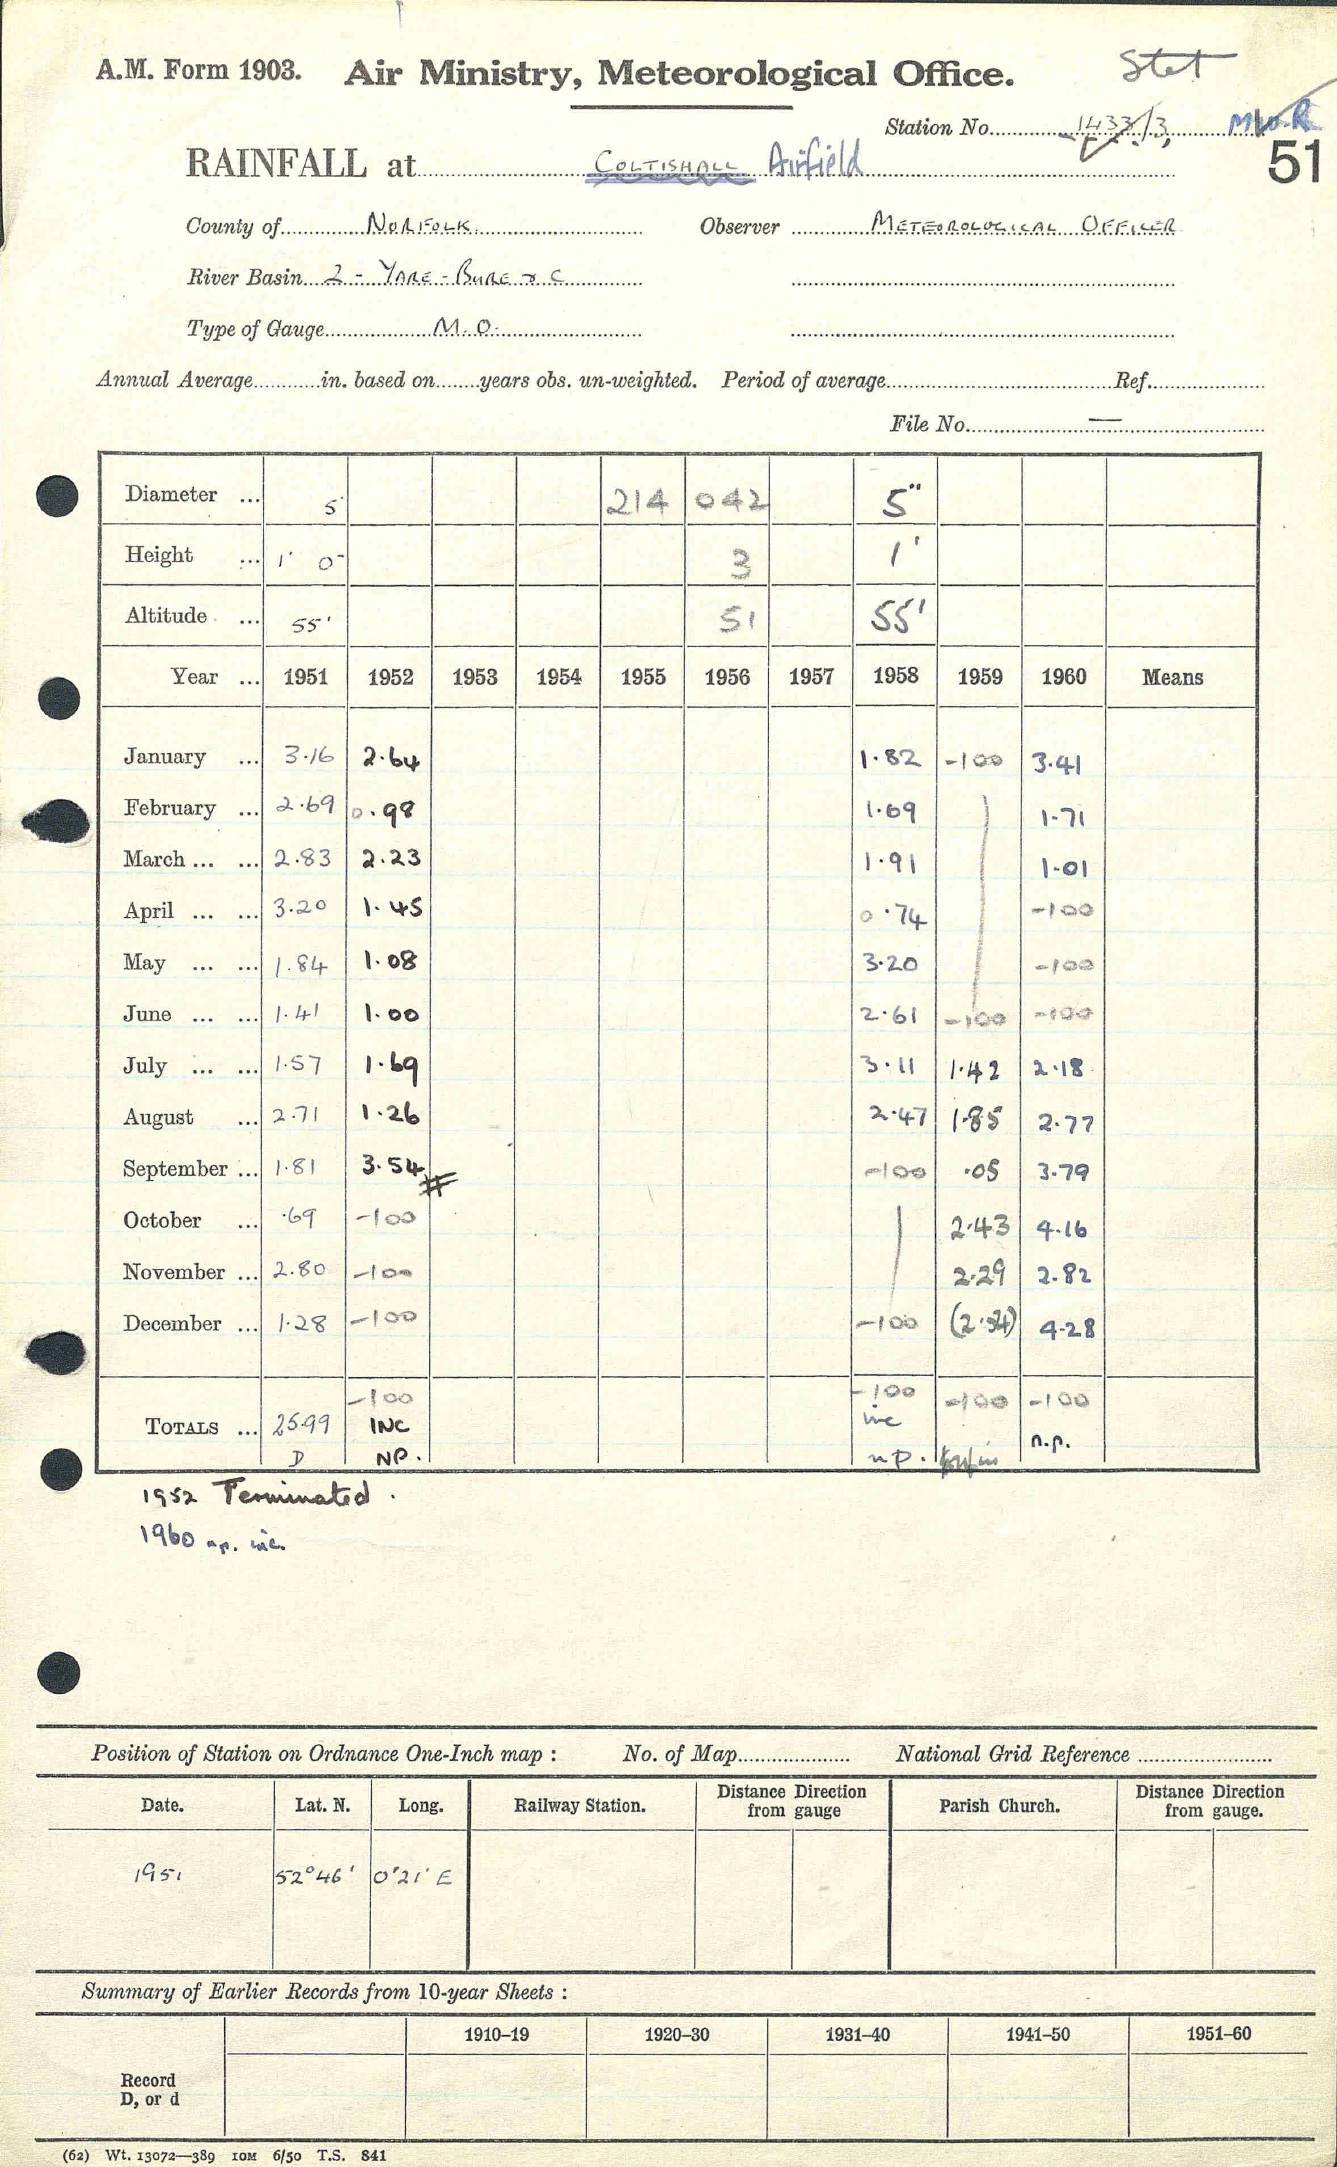 A.M. Form 1903. Air Ministry, Meteorological Office. Stet
Station No. 1433/3
51
RAINFALL at COLTISHALL Airfield
County of NORFOLK. Observer METEOROLOGICAL OFFICER
River Basin 2 - YARE - BURE & C
Type of Gauge M.O.
Annual Average in. based on years obs. un-weighted. Period of average Ref.
File No. —
Diameter ... 5 214 042 5"
Height ... 1' 0" 3 1'
Altitude ... 55' 51 55'
Year ... 1951 1952 1953 1954 1955 1956 1957 1958 1959 1960 Means
January ... 3.16 2.64 1.82 -100 3.41
February ... 2.69 0.98 1.69 1.71
March ... ... 2.83 2.23 1.91 1.01
April ... ... 3.20 1.45 0.74 -100
May ... ... 1.84 1.08 3.20 -100
June ... ... 1.41 1.00 2.61 -100 -100
July ... ... 1.57 1.69 3.11 1.42 2.18
August ... 2.71 1.26 2.47 1.85 2.77
September ... 1.81 3.54 -100 .05 3.79
October ... .69 -100 2.43 4.16
November ... 2.80 -100 2.29 2.82
December ... 1.28 -100 -100 4.28
-100 -100 -100 -100
TOTALS ... 25.99 INC inc n.p.
D NP. n p.
1952 Terminated.
1960 n.p. inc.
Position of Station on Ordnance One-Inch map : No. of Map National Grid Reference
Date. Lat. N. Long. Railway Station. Distance from gauge Direction Parish Church. Distance from gauge. Direction
1951 52°46' 0°21' E
Summary of Earlier Records from 10-year Sheets :
1910–19 1920–30 1931–40 1941–50 1951–60
Record
D, or d
(62) Wt. 13072—389 10M 6/50 T.S. 841